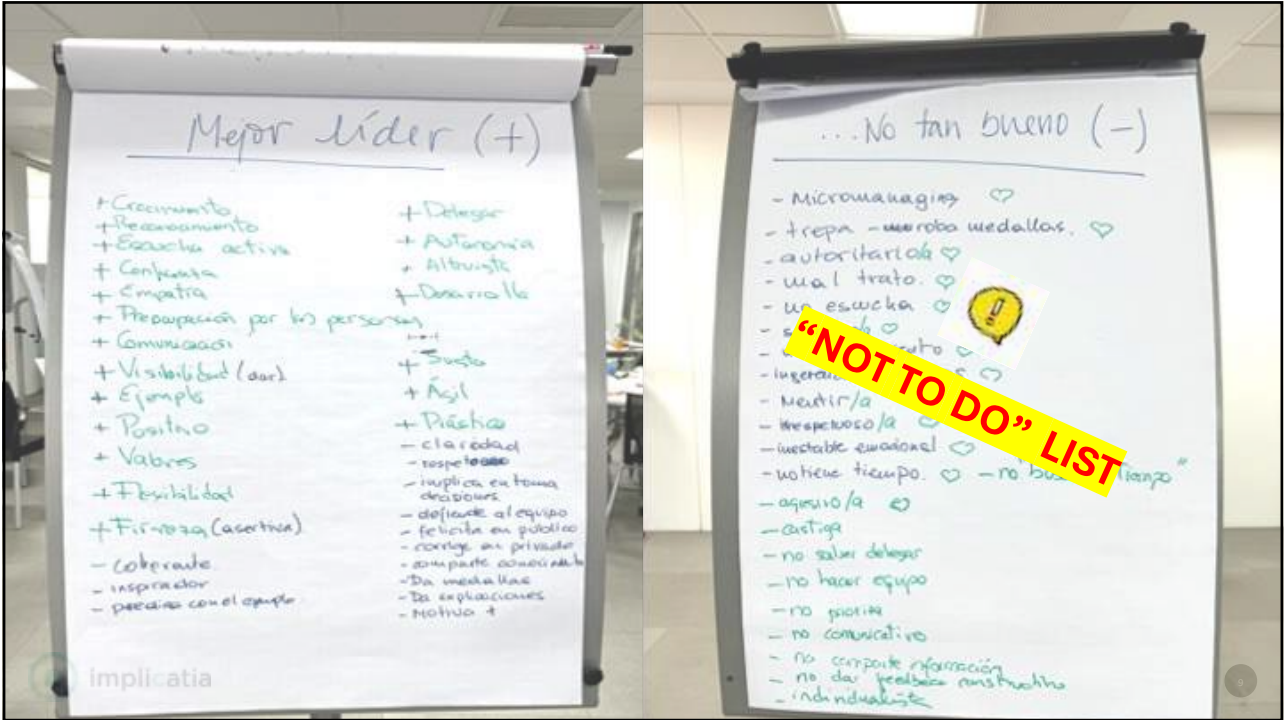 Mejor líder (+)
+ Crecimiento
+ Reconocimiento
+ Escucha activa
+ Confianza
+ Empatía
+ Preocupación por las personas
+ Comunicación
+ Visibilidad (dar)
+ Ejemplo
+ Positivo
+ Valores
+ Flexibilidad
+ Firmeza (asertiva)
- coherente
- inspirador
- predica con el ejemplo
+ Delegar
+ Autonomía
+ Altruista
+ Desarrollo
+ Ágil
- claridad
- implica en toma
decisiones
- defiende al equipo
- felicita en público
- corrige en privado
- comparte conocimiento
- Da medallas
- Da explicaciones
- Motiva +
implicatia
...No tan bueno (-)
- Micromanaging
- trepa - roba medallas.
- autoritario/a
- mal trato.
- no escucha
“NOT TO DO” LIST
- Mentir/a
- Irrespetuoso/a
- inestable emocional
- no tiene tiempo. - no
- agresivo/a
- castiga
- no saber delegar
- no hacer equipo
- no prioriza
- no comunicativo
- no comparte información
- no dar feedback constructivo
- individualista
9